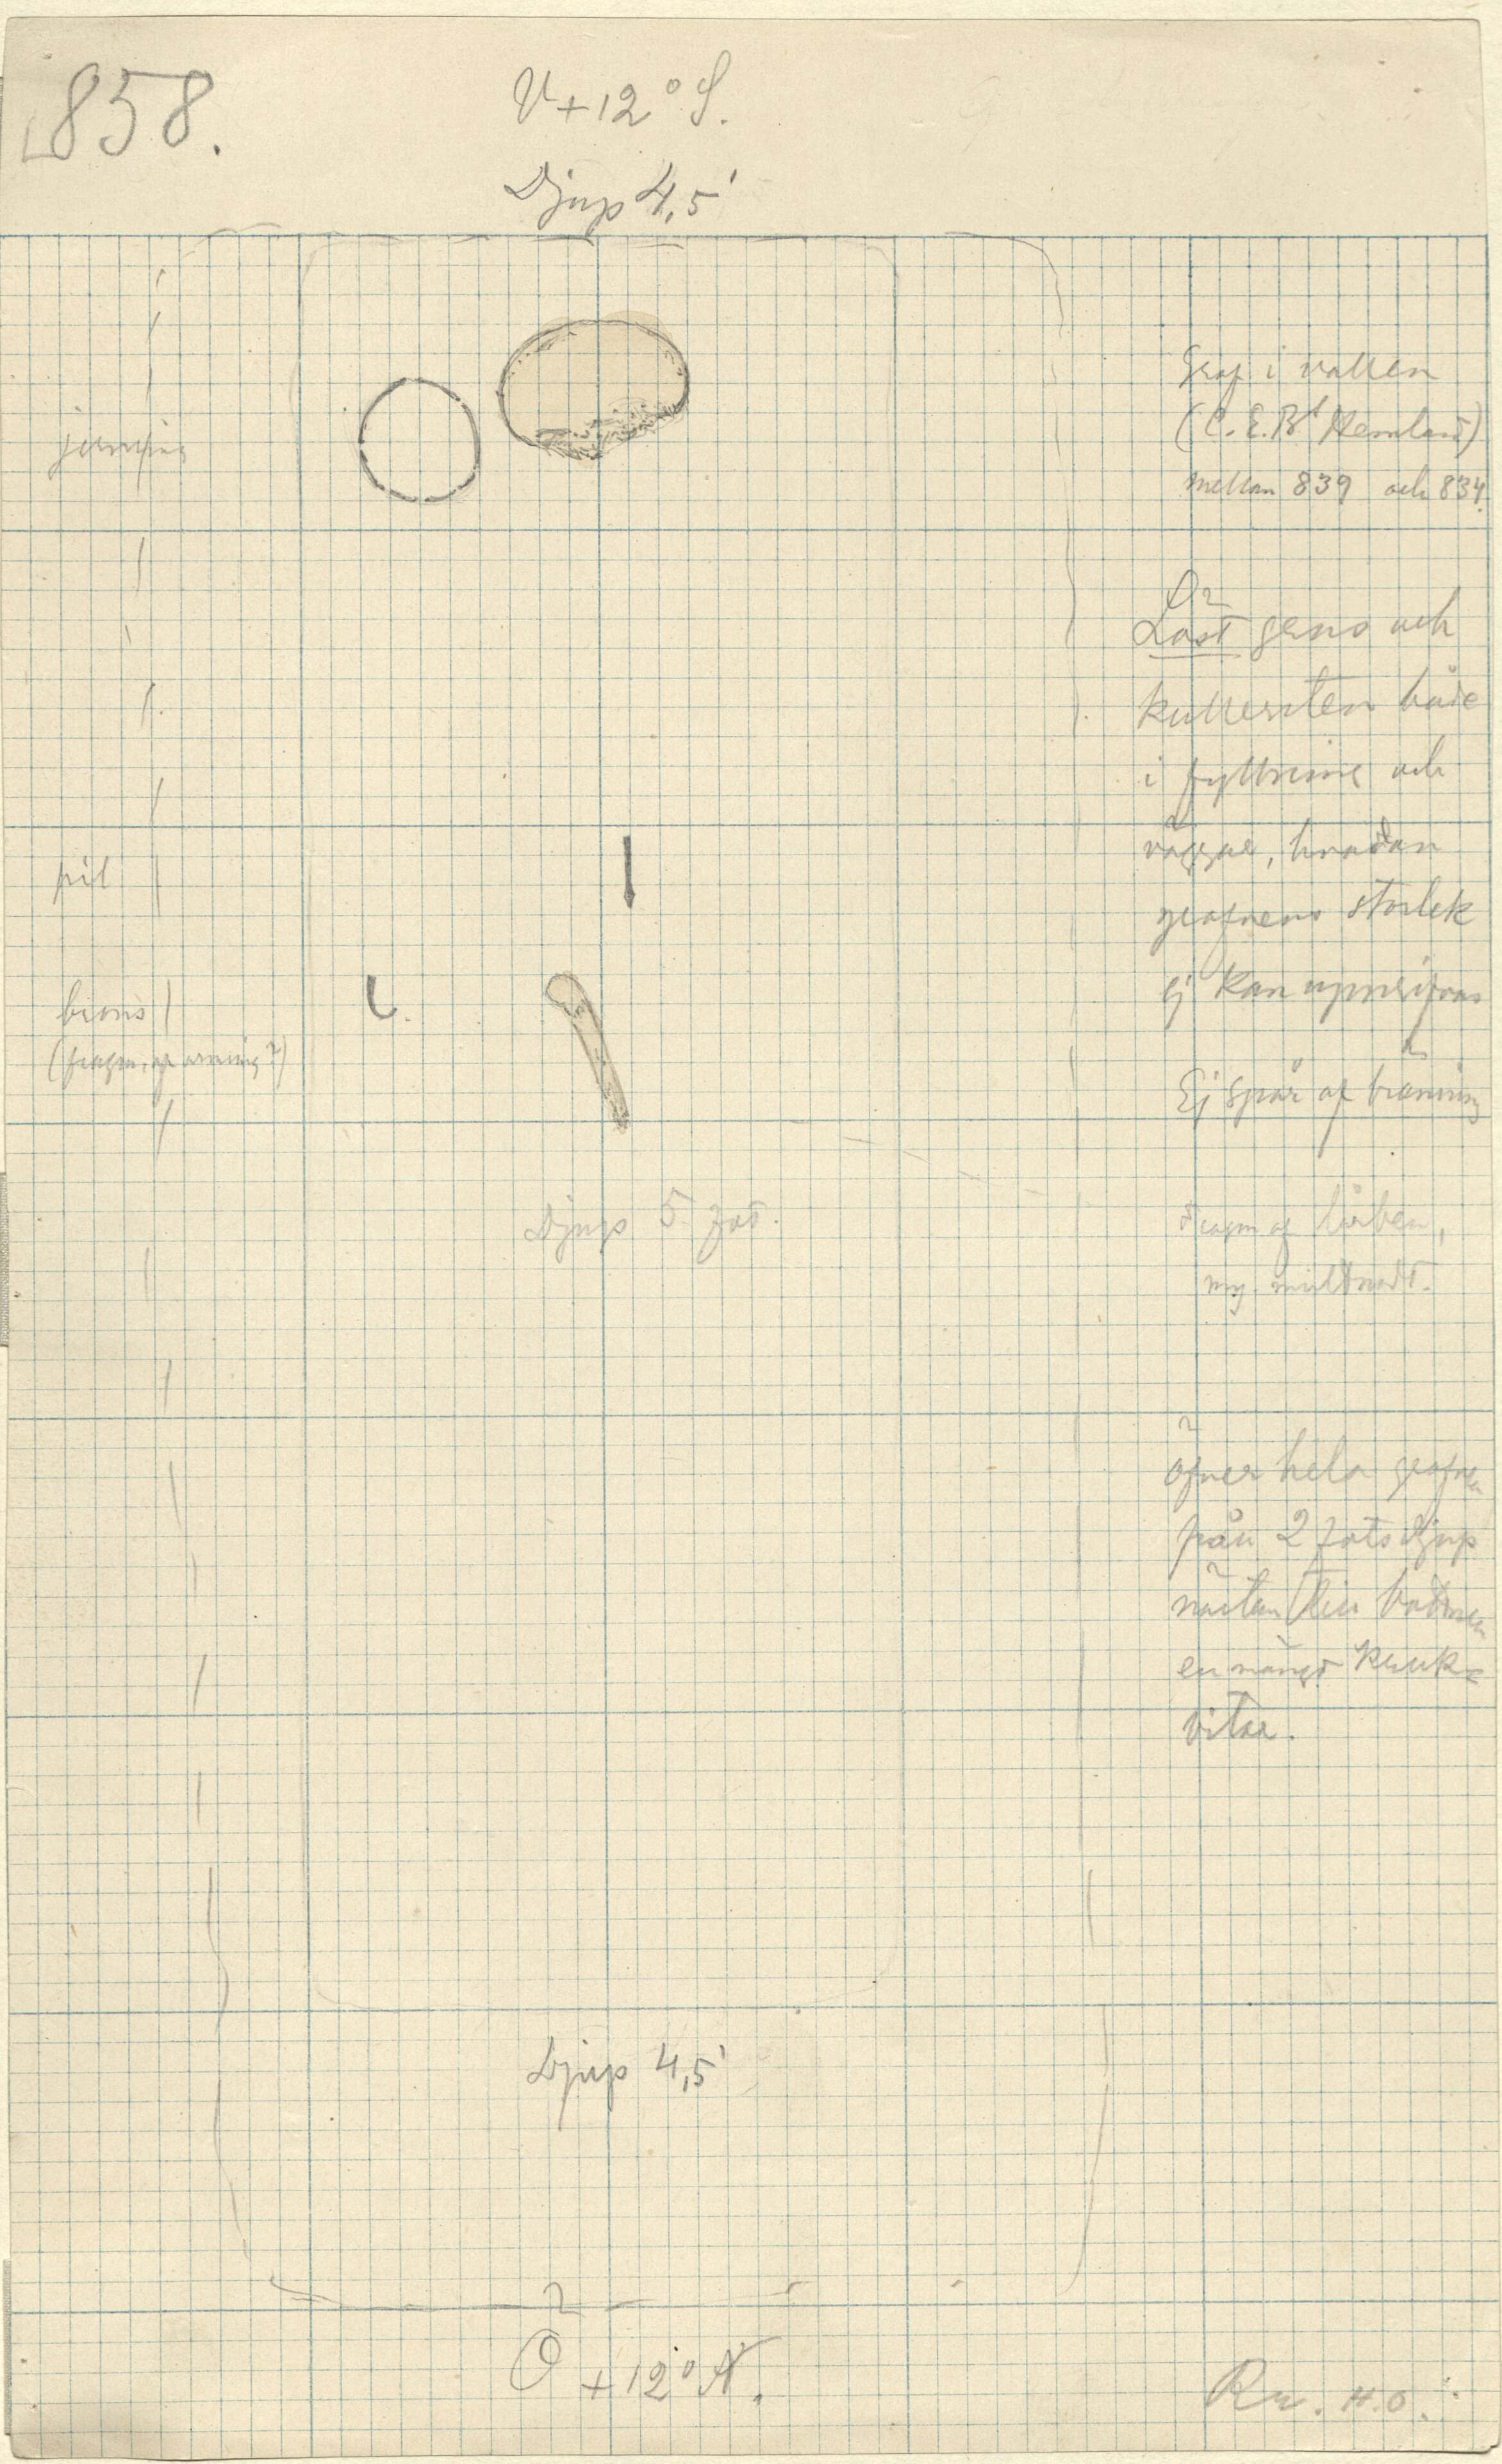 858.
V + 12° S.
Djup 4,5'
Graf i vallen
(C. E. Bd Hemland)
mellan 839 och 834.
jernring
Löst grus och
kullersten både
i fyllning och
väggar, hvadan
pil
grafvens storlek
ej kan uppgifvas
brons
(fragm. af armring?)
Ej spår af bränning
Djup 5 fot.
Fragm af lårben,
my. multnadt.
Öfver hela grafven
från 2 fots djup
nästan till bottnen
en mängd kruk-
bitar.
Djup 4,5'
Ö + 12° N.
H.O.